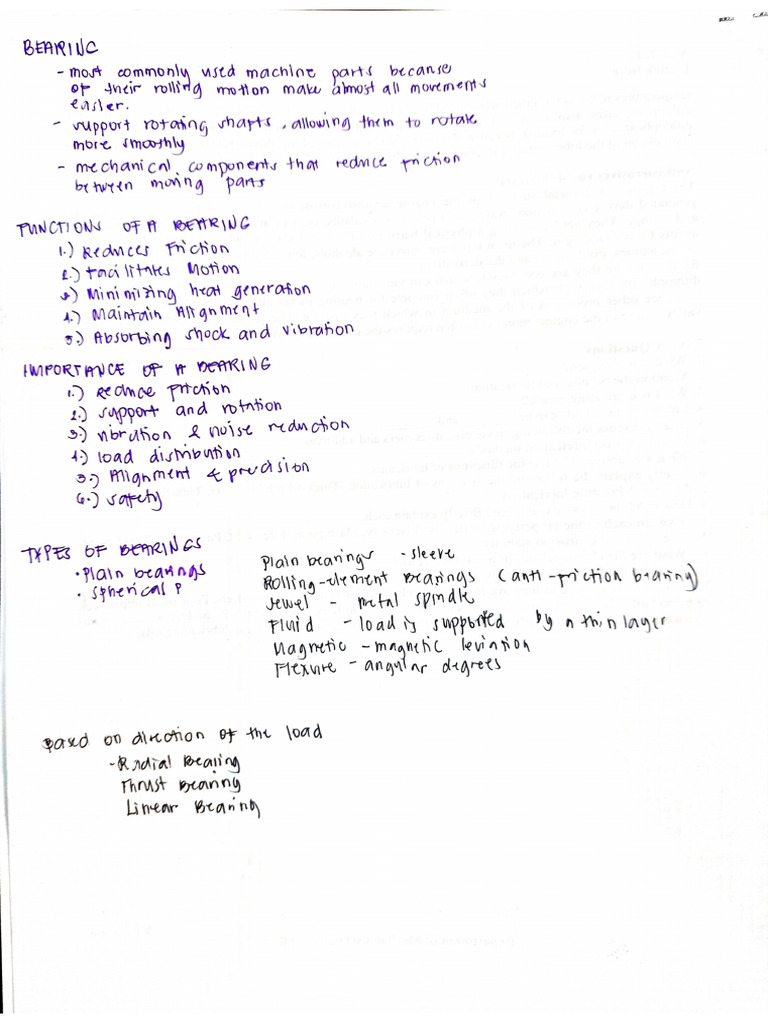 BEARING
- most commonly used machine parts because
of their rolling motion make almost all movements
easier.
- support rotating shafts, allowing them to rotate
more smoothly
- mechanical components that reduce friction
between moving parts
FUNCTIONS OF A BEARING
1.) Reduces Friction
2.) Facilitates Motion
3.) Minimizing heat generation
4.) Maintain Alignment
5.) Absorbing shock and vibration
IMPORTANCE OF A BEARING
1.) Reduce friction
2.) support and rotation
3.) vibration & noise reduction
4.) load distribution
5.) Alignment & precision
6.) safety
TYPES OF BEARINGS
• Plain bearings
• Spherical P
Plain bearings - sleeve
Rolling-element Bearings (anti-friction bearing)
Jewel - metal spindle
Fluid - load is supported by a thin layer
Magnetic - magnetic leviation
Flexure - angular degrees
Based on direction of the load
- Radial Bearing
Thrust Bearing
Linear Bearing